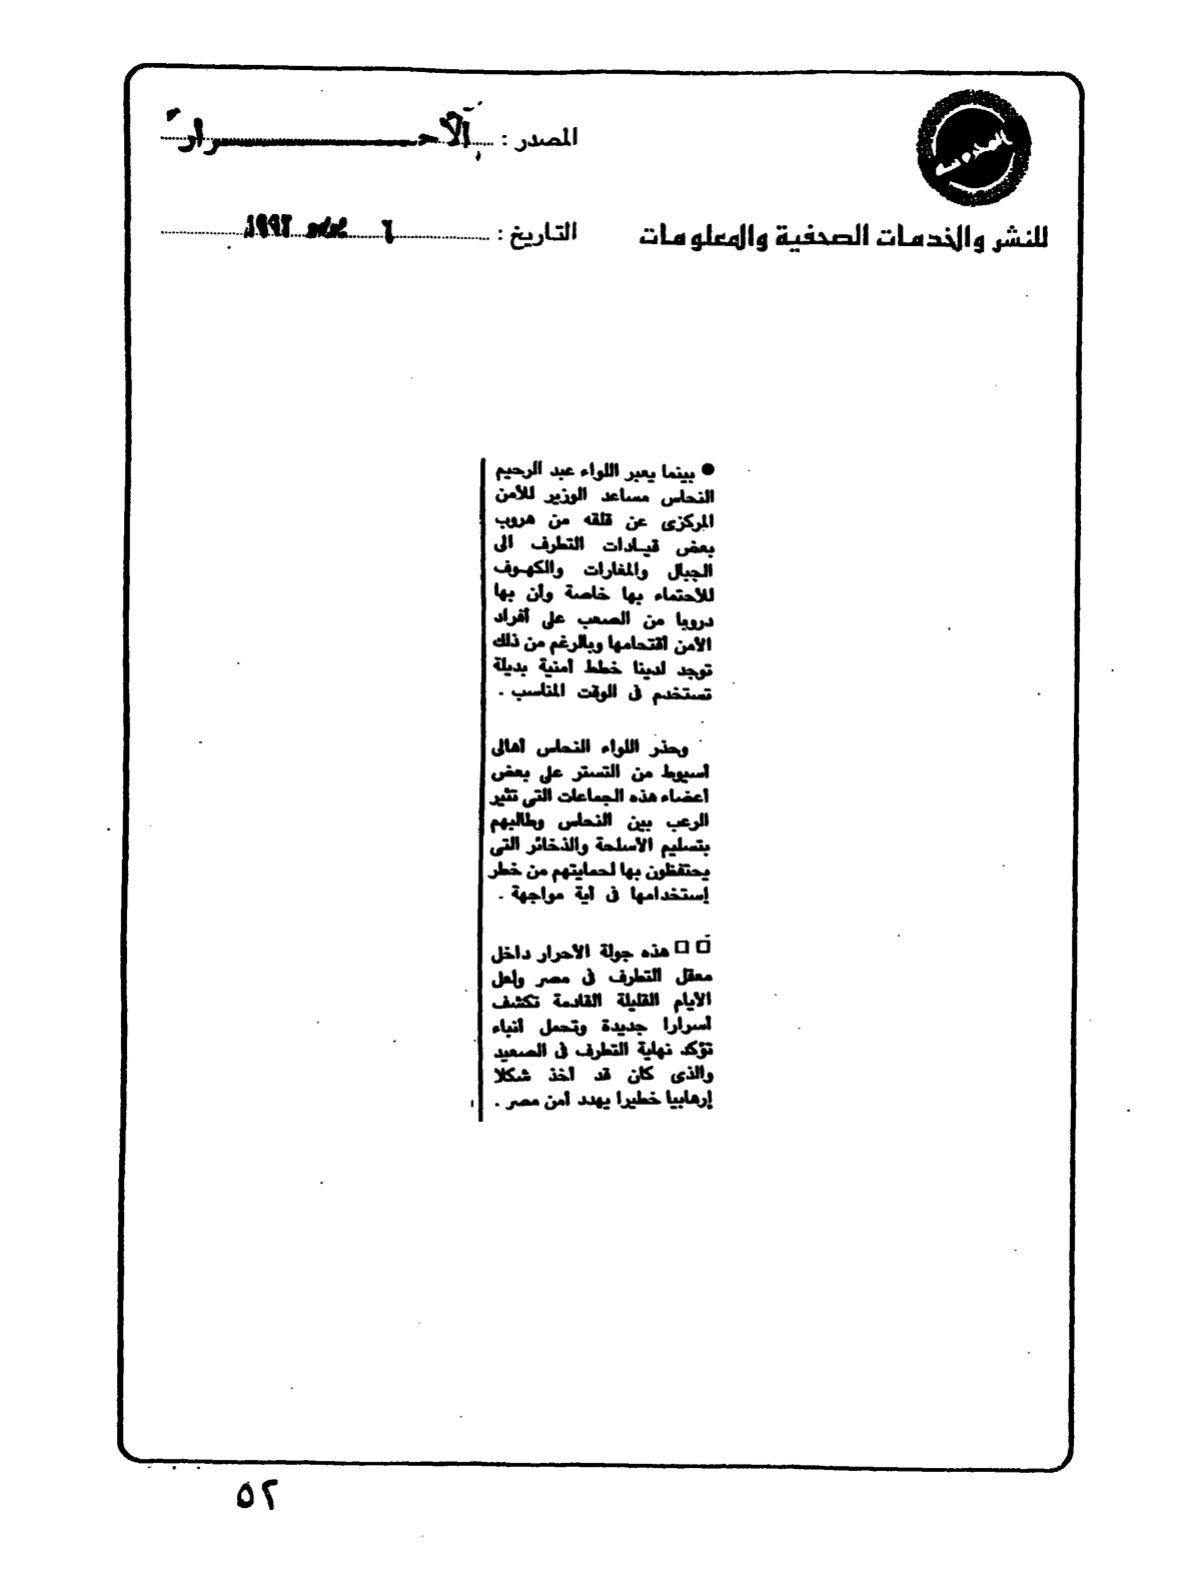 المصدر : الأحـــــــرار
التاريخ : ٦ ١٩٩٢
للنشر والخدمات الصحفية والمعلومات
● بينما يعبر اللواء عبد الرحيم
النحاس مساعد الوزير للأمن
المركزى عن قلقه من هروب
بعض قيادات التطرف الى
الجبال والمغارات والكهوف
للأحتماء بها خاصة وأن بها
دروبا من الصعب على أفراد
الأمن أقتحامها وبالرغم من ذلك
توجد لدينا خطط أمنية بديلة
تستخدم فى الوقت المناسب .
وحذر اللواء النحاس أهالى
أسيوط من التستر على بعض
أعضاء هذه الجماعات التى تثير
الرعب بين النحاس وطالبهم
بتسليم الأسلحة والذخائر التى
يحتفظون بها لحمايتهم من خطر
إستخدامها فى أية مواجهة .
□□ هذه جولة الأحرار داخل
معقل التطرف فى مصر ولعل
الأيام القليلة القادمة تكشف
أسرارا جديدة وتحمل أنباء
تؤكد نهاية التطرف فى الصعيد
والذى كان قد أخذ شكلا
إرهابيا خطيرا يهدد أمن مصر .
٥٢